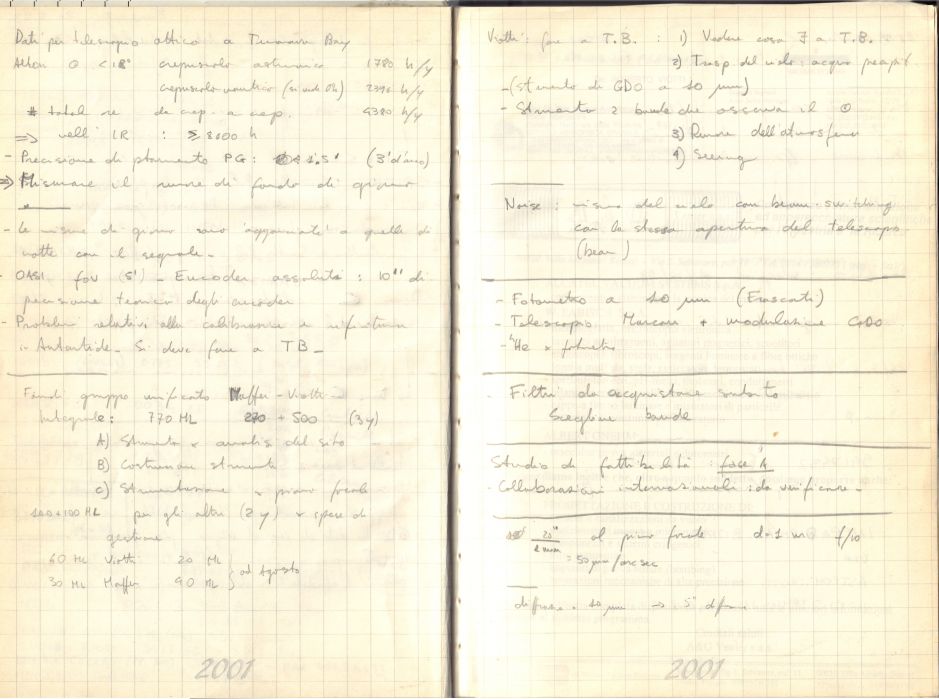 Dati per telescopio ottico a Terranova Bay
⊙ < 18° crepuscolo astronomico 1780 h/y
crepuscolo nautico (si vede 2346 h/y
# total ore da crep. a crep. 4380 h/y
=> nell' IR : ≥ 8000 h
- Precisione di puntamento PG: 1.5' (3' d'arco)
=> Misurare il rumore di fondo di giorno
- le misure di giorno sono agganciate a quelle di
notte con il segnale -
- OASI fov (5') - Encoder assoluti : 10" di
precisione teorica degli encoder
- Problemi relativi alla calibrazione e
in Antartide - Si deve fare a TB -
Fondi gruppo unificato Maffei - Viotti
Integrale: 770 ML 270 + 500 (3y)
A) Strumento x analisi del sito
B) Costruzione strumenti
C) Strumentazione x piano focale
100+100 ML per gli altri (2 y) x spese di
gestione
60 ML Viotti 20 ML
30 ML Maffei 90 ML } ad Agosto
2001
Viotti: fare a T.B. : 1) Vedere cosa ∃ a T.B.
2) Trasp. del cielo: acqua precip.
- (strumento di GDO a 10 µm)
- Strumento 2 bande che osserva il ⊙
3) Rumore dell'atmosfera
4) Seeing
Noise : misura del cielo con beam-switching
con la stessa apertura del telescopio
(beam)
- Fotometro a 10 µm
- Telescopio Marconi + modulazione GDO
- ⁴He x fotometro
- Filtri da acquistare subito
Scegliere bande
Studio di fattibilità : fase A
- Collaborazioni internazionali : da verificare -
20"/1 mm al piano focale d=1 m f/10
= 50 µm/arcsec
diffraz. 10 µm → 5"
2001